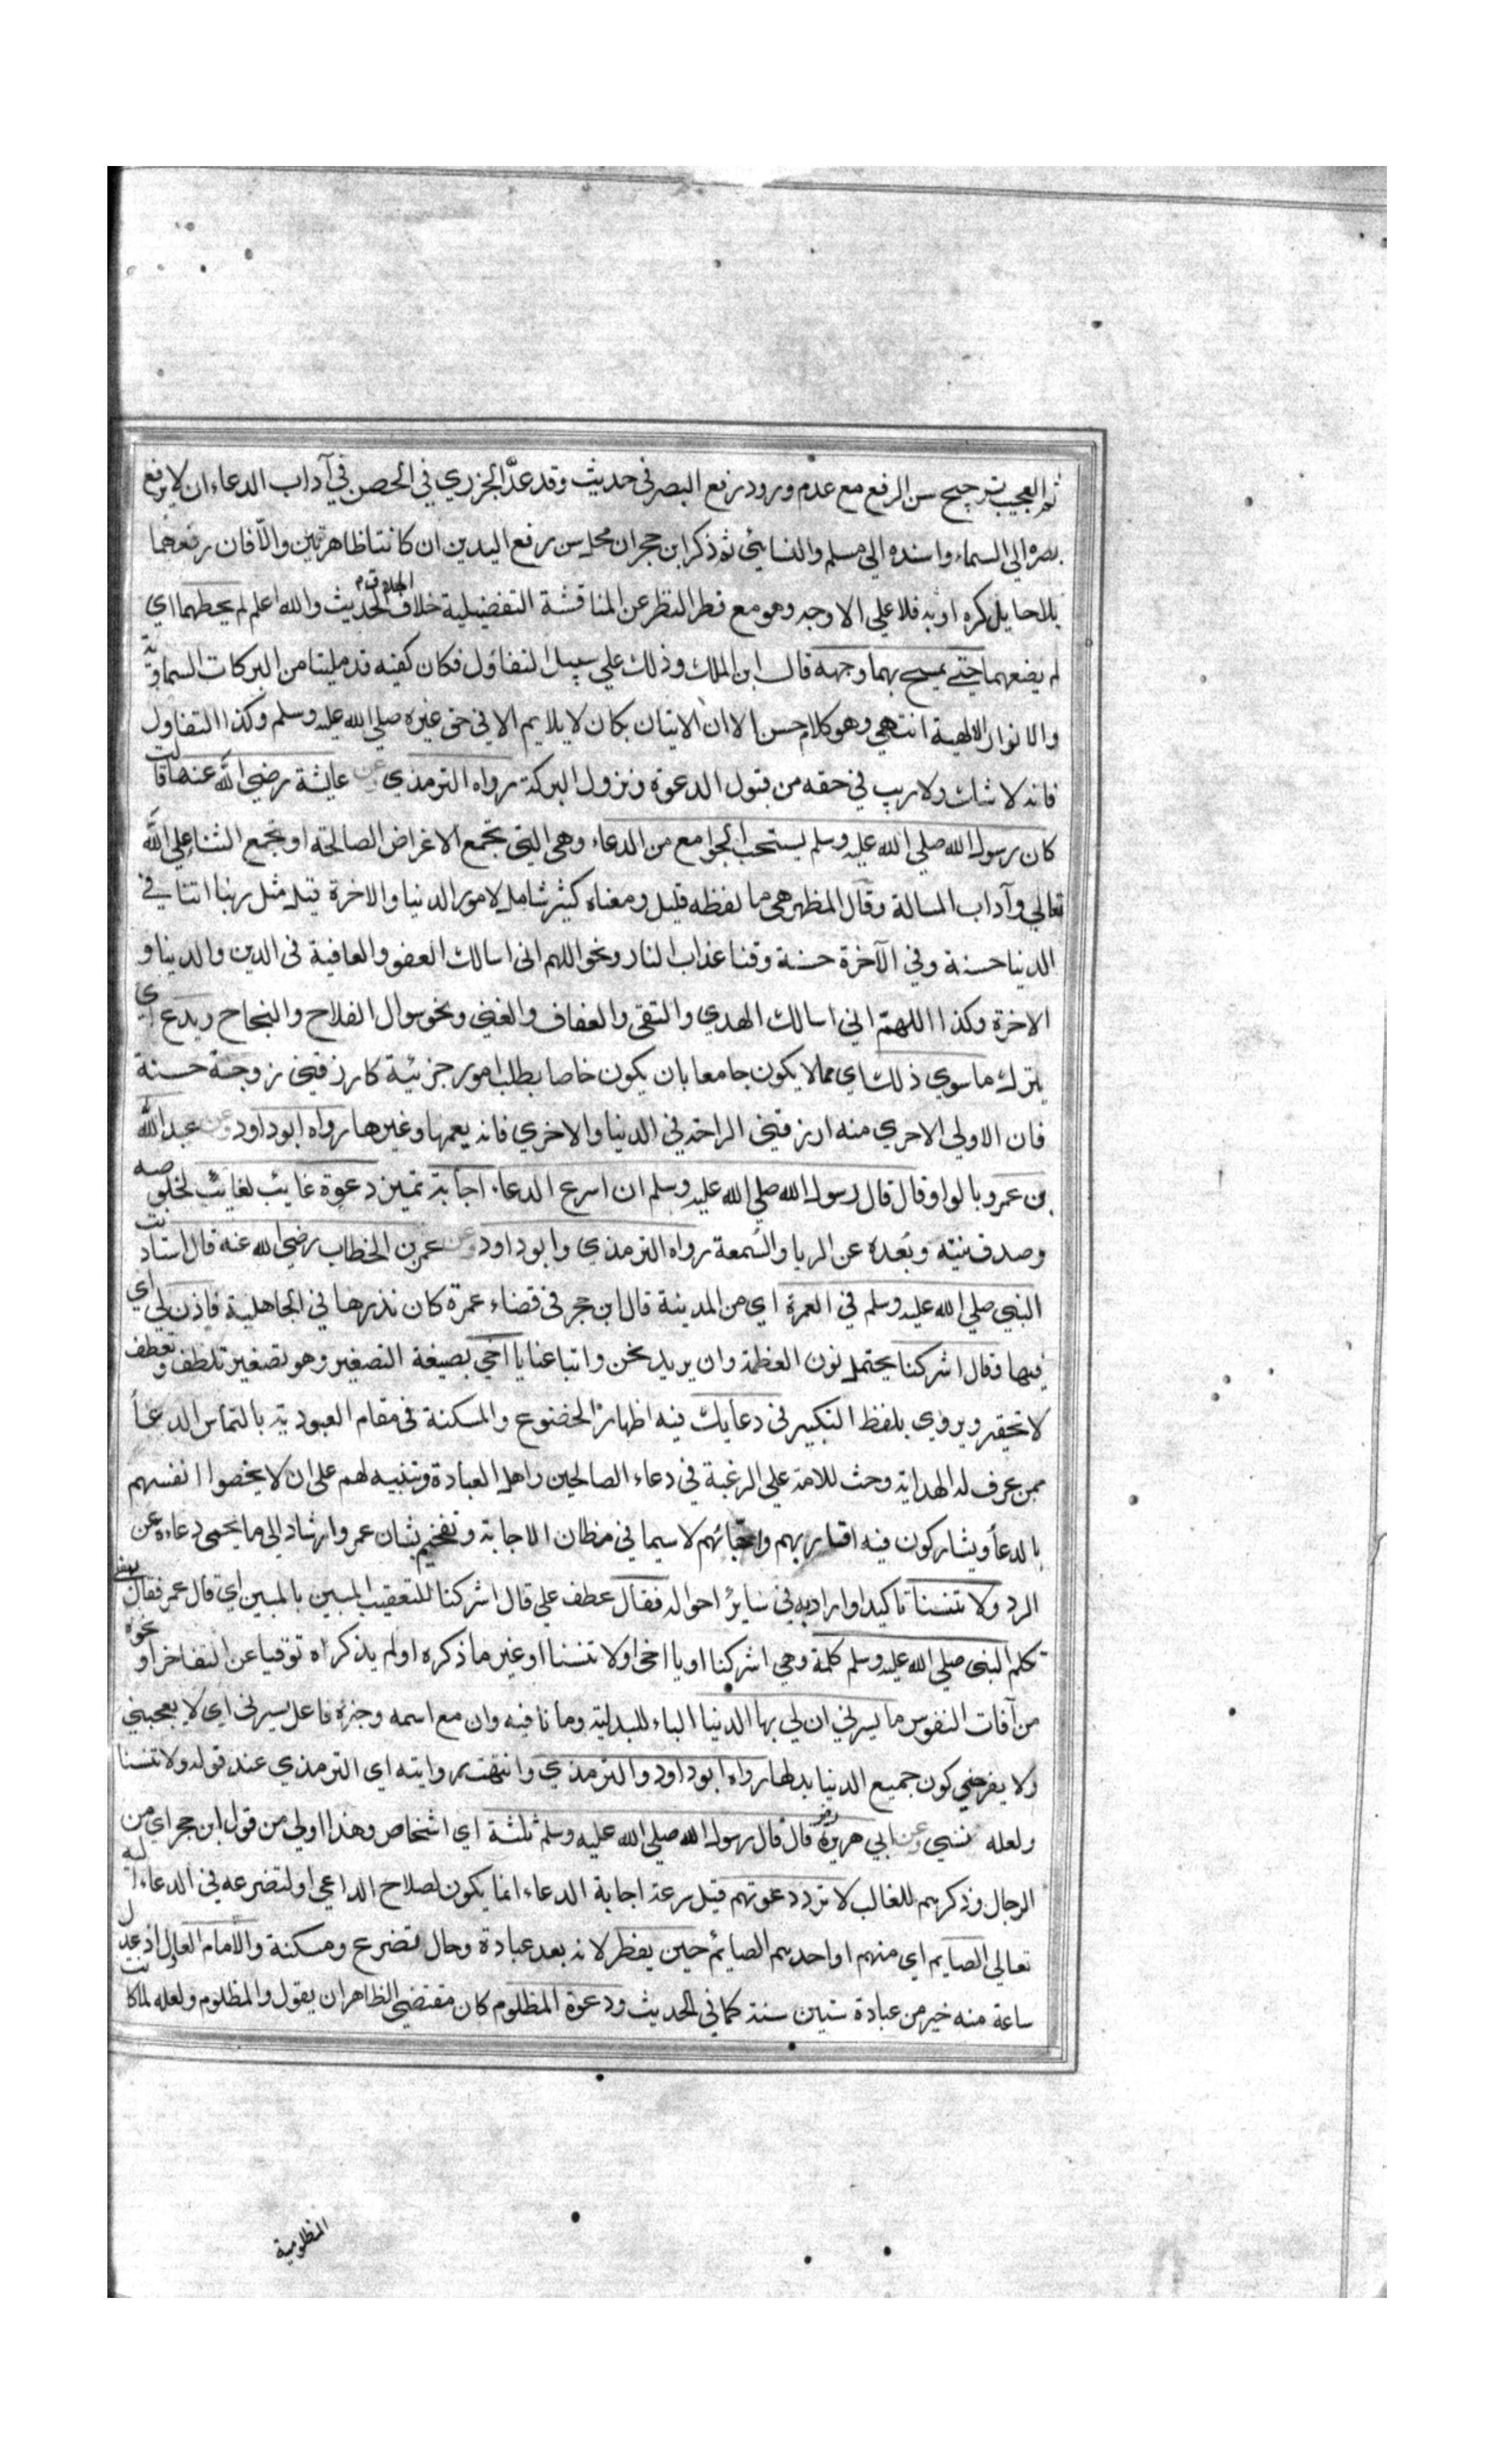 ثم العجب ترجيح سن الرفع مع عدم ورود رفع البصر في حديث وقد عدّ الجزري في الحصن في آداب الدعاء ان لا يرفع
بصره الي السماء واسنده الي مسلم والنسايئ ثم ذكر ابن حجر ان محل سن رفع اليدين ان كانتا ظاهرتين والّا فان رفعهما
بلا حايل كره او به فلا علي الاوجه وهو مع قطر النظر عن المناقشة التفضيلية خلاف الحديث والله اعلم لم يحطهما اي
لم يضعهما حتي يمسح بهما وجهه قال ابن الملك وذلك علي سبيل التفاؤل فكان كفيه قد مليتا من البركات السماوية
والانوار الالهية انتهي وهو كلام حسن الا ان الاتيان بكان لا يلايم الا في حق غيره صلي الله عليه وسلم وكذا التفاول
فانه لا شك ولا ريب في حقه من قبول الدعوة ونزول البركة رواه الترمذي وعن عايشة رضي الله عنها قالت
كان رسول الله صلي الله عليه وسلم يستحب الجوامع من الدعاء وهي التي تجمع الاغراض الصالحة او تجمع الثناء علي الله
تعالي وآداب المسالة وقال المظهر هي ما لفظه قليل ومعناه كثير شامل لامور الدنيا والاخرة قيل مثل ربنا اتنا في
الدنيا حسنة وفي الآخرة حسنة وقنا عذاب النار ونحو اللهم اني اسالك العفو والعافية في الدين والدنيا و
الاخرة وكذا اللهمّ اني اسالك الهدي والتقي والعفاف والغني ونحو سوال الفلاح والنجاح ويدع اي
يترك ما سوي ذلك اي مما لا يكون جامعا بان يكون خاصا بطلب امور جزئية كارزقني زوجة حسنة
فان الاولي الاحري منه ارزقني الراحة في الدنيا والاخري فانه يعمها وغيرها رواه ابو داود وعن عبد الله
بن عمرو بالواو قال قال رسول الله صلي الله عليه وسلم ان اسرع الدعاء اجابة تميز دعوة غايب لغائب لخلوصه
وصدق نيته وبُعده عن الريا والسُمعة رواه الترمذي وابو داود وعن عمر بن الخطاب رضي الله عنه قال استاذنت
النبي صلي الله عليه وسلم في العمرة اي من المدينة قال ابن حجر في قضاء عمرة كان نذرها في الجاهلية فاذن لي اي
فيها فقال اشركنا يحتمل نون العظمة وان يريد نحن واتباعنا يا اخي بصيغة التصغير وهو تصغير تلطف وتعطف
لا تحقير ويروي بلفظ التكبير في دعايك فيه اظهار الخضوع والمسكنة في مقام العبودية بالتماس الدعاً
ممن عرف له الهداية وحث للامة علي الرغبة في دعاء الصالحين واهل العبادة وتنبيه لهم علي ان لا يخصوا انفسهم
بالدعاً ويشاركون فيه اقاربهم واحبائهم لا سيما في مظان الاجابة وتفخيم بشان عمر وارشاد الي ما يحمي دعاءه عن
الرد ولا تنسنا تاكيد او اراد به في سائر احواله فقال عطف علي قال اشركنا للتعقيب المبين بالمبين اي قال عمر فقال يعني
تكلم النبي صلي الله عليه وسلم كلمة وهي اشركنا او يا اخي او لا تنسنا او غير ما ذكره ولم يذكراه توقيا عن التفاخر او نحوه
من آفات النفوس ما يسرني ان لي بها الدنيا الباء للبدلية وما نافيه وان مع اسمه وخبره فاعل يسرني اي لا يعجبني
ولا يفرحني كون جميع الدنيا بدلها رواه ابو داود والترمذي وانتهت روايته اي الترمذي عند قوله ولا تنسنا
ولعله نسي وعن ابي هريرة رضي قال قال رسول الله صلي الله عليه وسلم ثلثة اي اشخاص وهذا اولي من قول ابن حجر اي من
الرجال وذكرهم للغالب لا ترد دعوتهم قيل سرعة اجابة الدعاء انما يكون لصلاح الداعي او لتضرعه في الدعاء اليه
تعالي الصايم اي منهم او احدهم الصايم حين يفطر لانه بعد عبادة وحال تضرع ومسكنة والامام العادل اذ عدل
ساعة منه خير من عبادة ستين سنة كما في الحديث ودعوة المظلوم كان مقتضي الظاهر ان يقول والمظلوم ولعله لما كانت
المظلومية